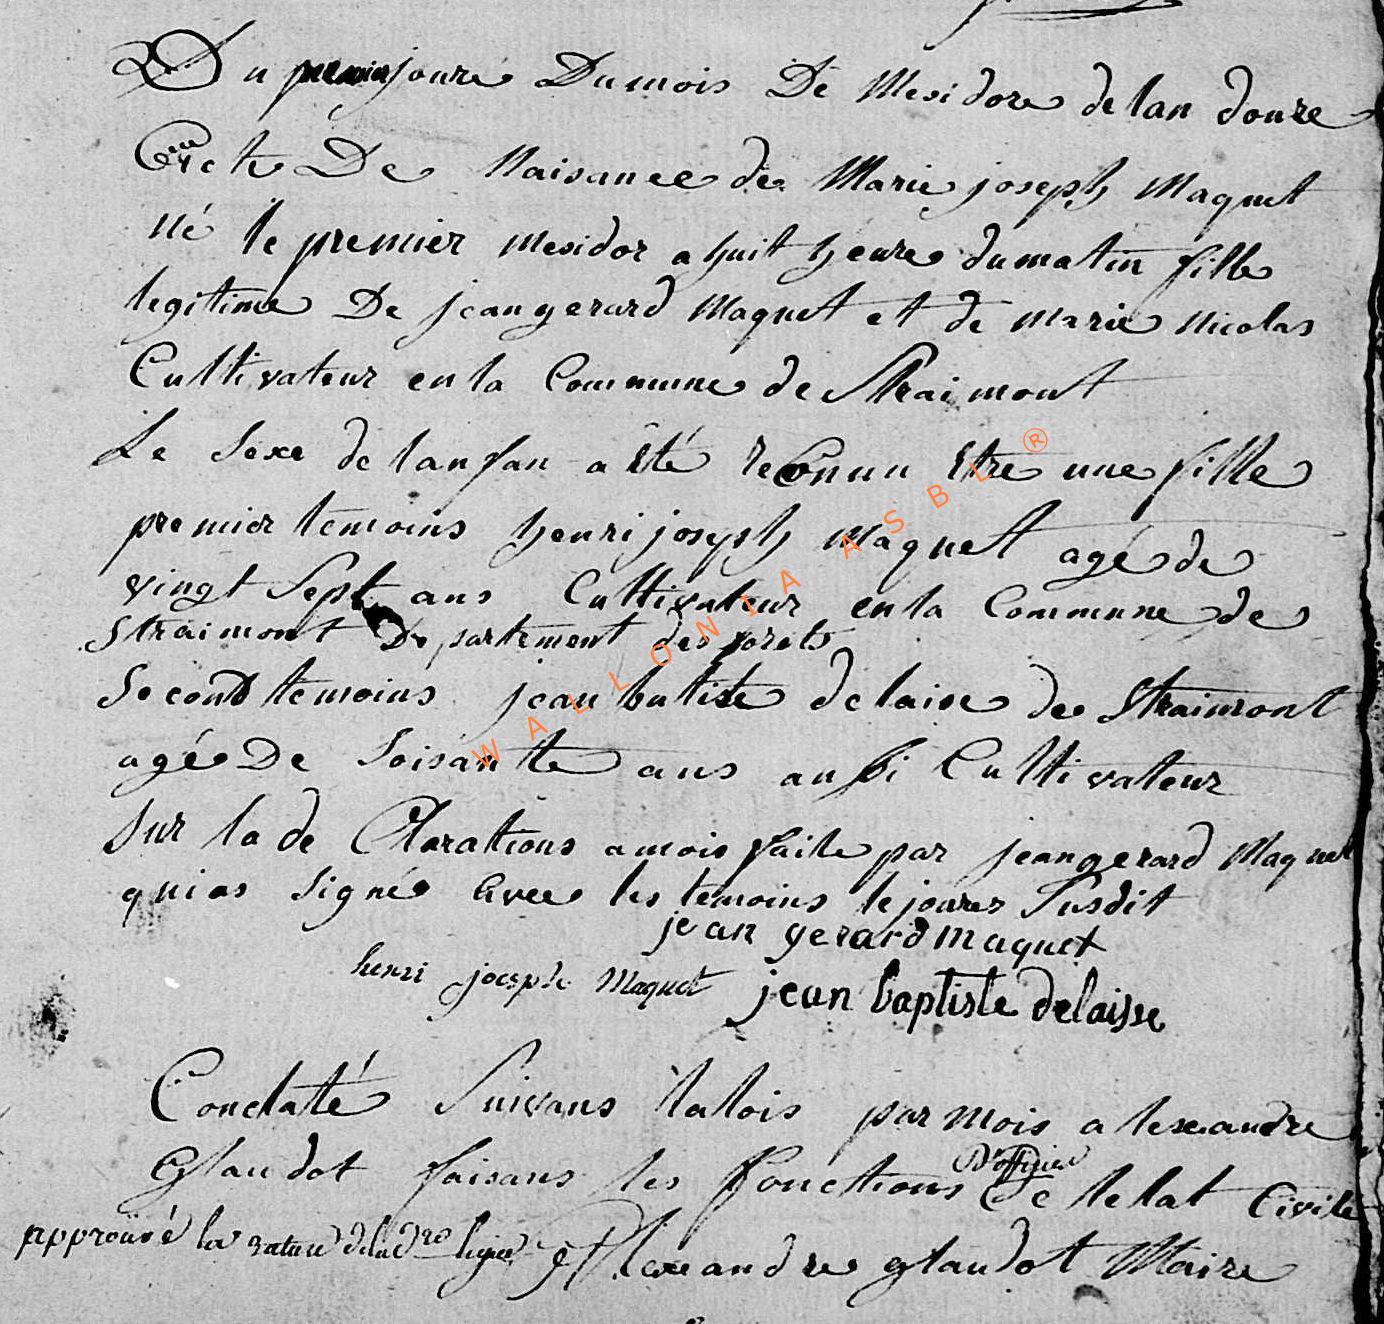 Du premier joure Du mois De Mesidore de lan douze
acte De Naisance de Marie joseph Maquet
né le premier mesidor a huit heure du matin fille
legitime De jean gerard Maquet et de marie Nicolas
Cultivateur en la Commune de Straimont
Le Sexe de lanfan a Eté reConnu Etre une fille
premier temoins henri joseph Maquet agé de
vingt Sept ans Cultivateur en la Commune de
Straimont Departement des forets
Second temoins jean batiste delaise de Straimont
agé De Soisante ans aussi Cultivateur
Sur la de Clarations a mois faite par jean gerard Maquet
qui as Signé Avec les temoins le joures Susdit
jean gerard maquet
henri joesph Maquet jean baptiste delaisse
Constaté Suivans lalois par mois alexandre
Glaudot faisans les Fonctions D'officier De letat Civile
approuvé la rature de la dre ligne Alexandre glaudot Maire
WALLONIA ASBL ®